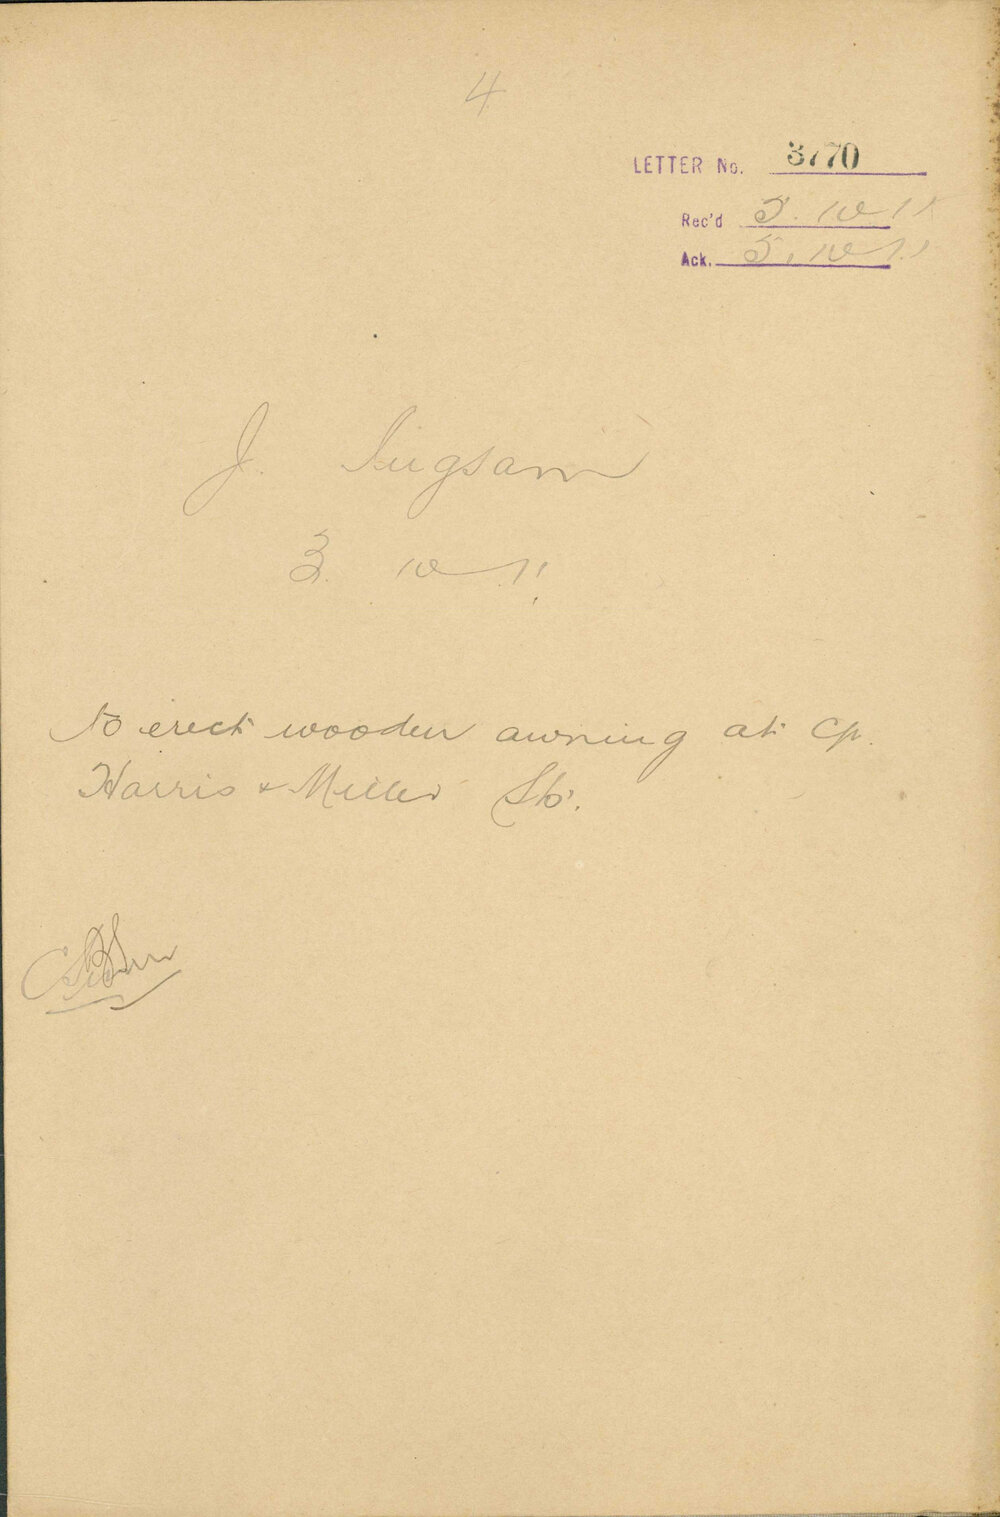 4
LETTER No. 3770
Rec'd 3. 10 11
Ack. 5. 10 11
J.
3. 10 11
to erect wooden awning at Cr.
Harris & Miller Sts.